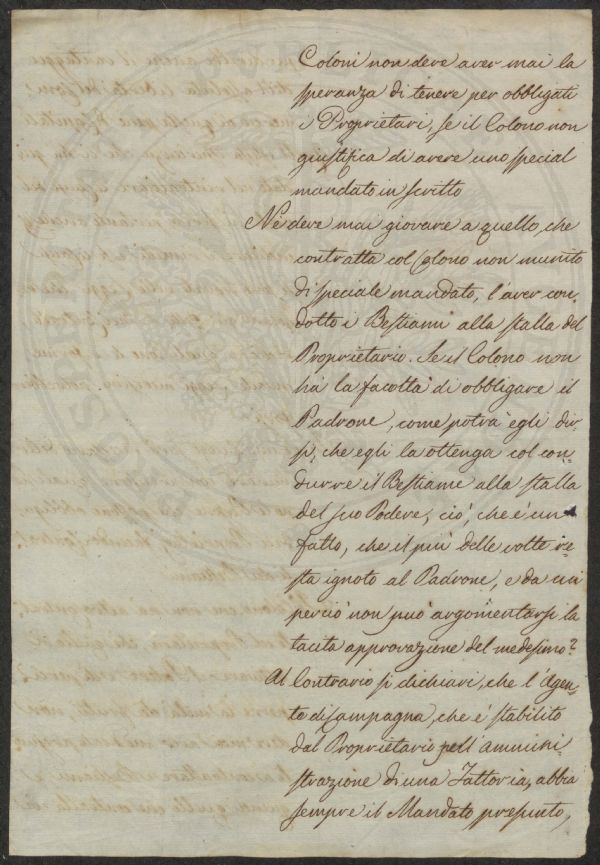 Coloni non deve aver mai la
speranza di tenere per obbligati
i Proprietari, se il Colono non
giustifica di avere uno special
mandato in scritto
Nè deve mai giovare a quello, che
contratta col Colono non munito
di speciale mandato, l'aver con-
dotto i Bestiami alla stalla del
Proprietario. Se il Colono non
ha la facoltà di obbligare il
Padrone, come potrà egli dir-
si, che egli la ottenga col con-
durre il Bestiame alla stalla
del suo Podere, ciò, che è un
fatto, che il più delle volte re-
sta ignoto al Padrone, e da cui
perciò non può argomentarsi la
tacita approvazione del medesimo?
Al Contrario si dichiari, che l'Agen-
te di Campagna, che è stabilito
dal Proprietario nell'ammini-
strazione di una Fattoria, abbia
sempre il Mandato presunto,